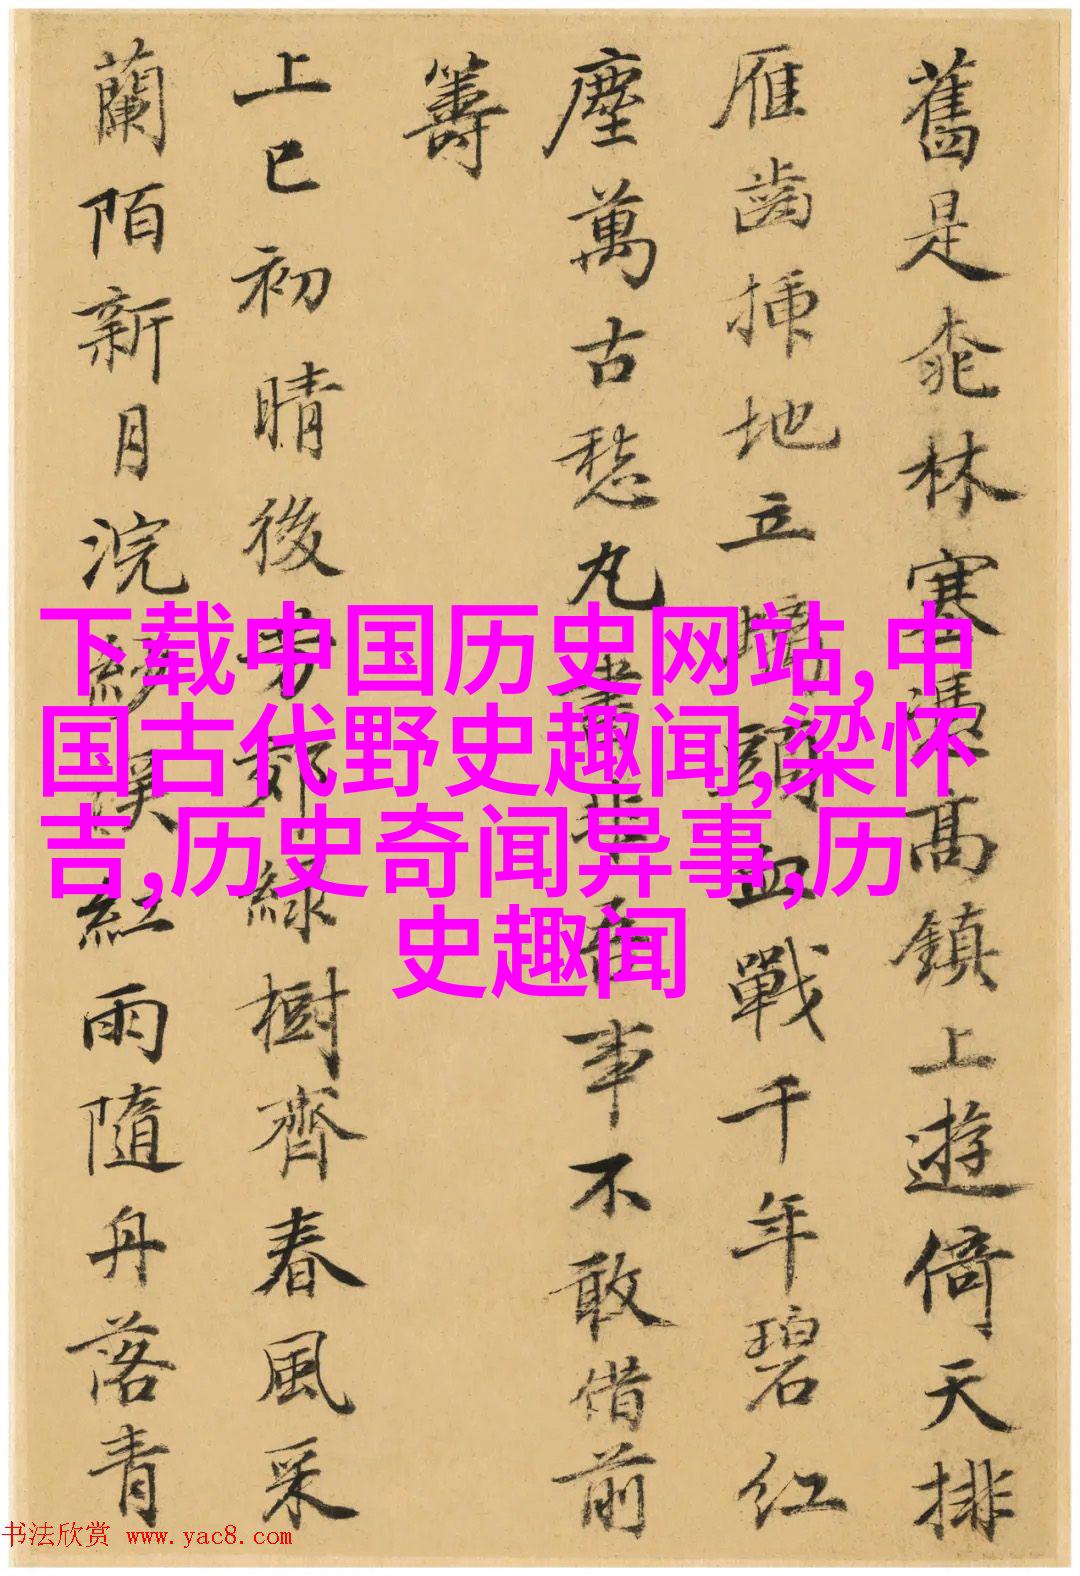 舊是桃林塞憑高鎮上遊倚天排
雁齒插地立螭頭血戰千年碧紅
塵萬古愁丸非吾事不敢借前
籌
上巳初晴後芳郊綠樹齊春風采
蘭陌新月浣紗溪紅雨隨舟落青
下载中国历史网站,中
国古代野史趣闻,梁怀
吉,历史奇闻异事,历
史趣闻
书法欣赏 www.yac8.com